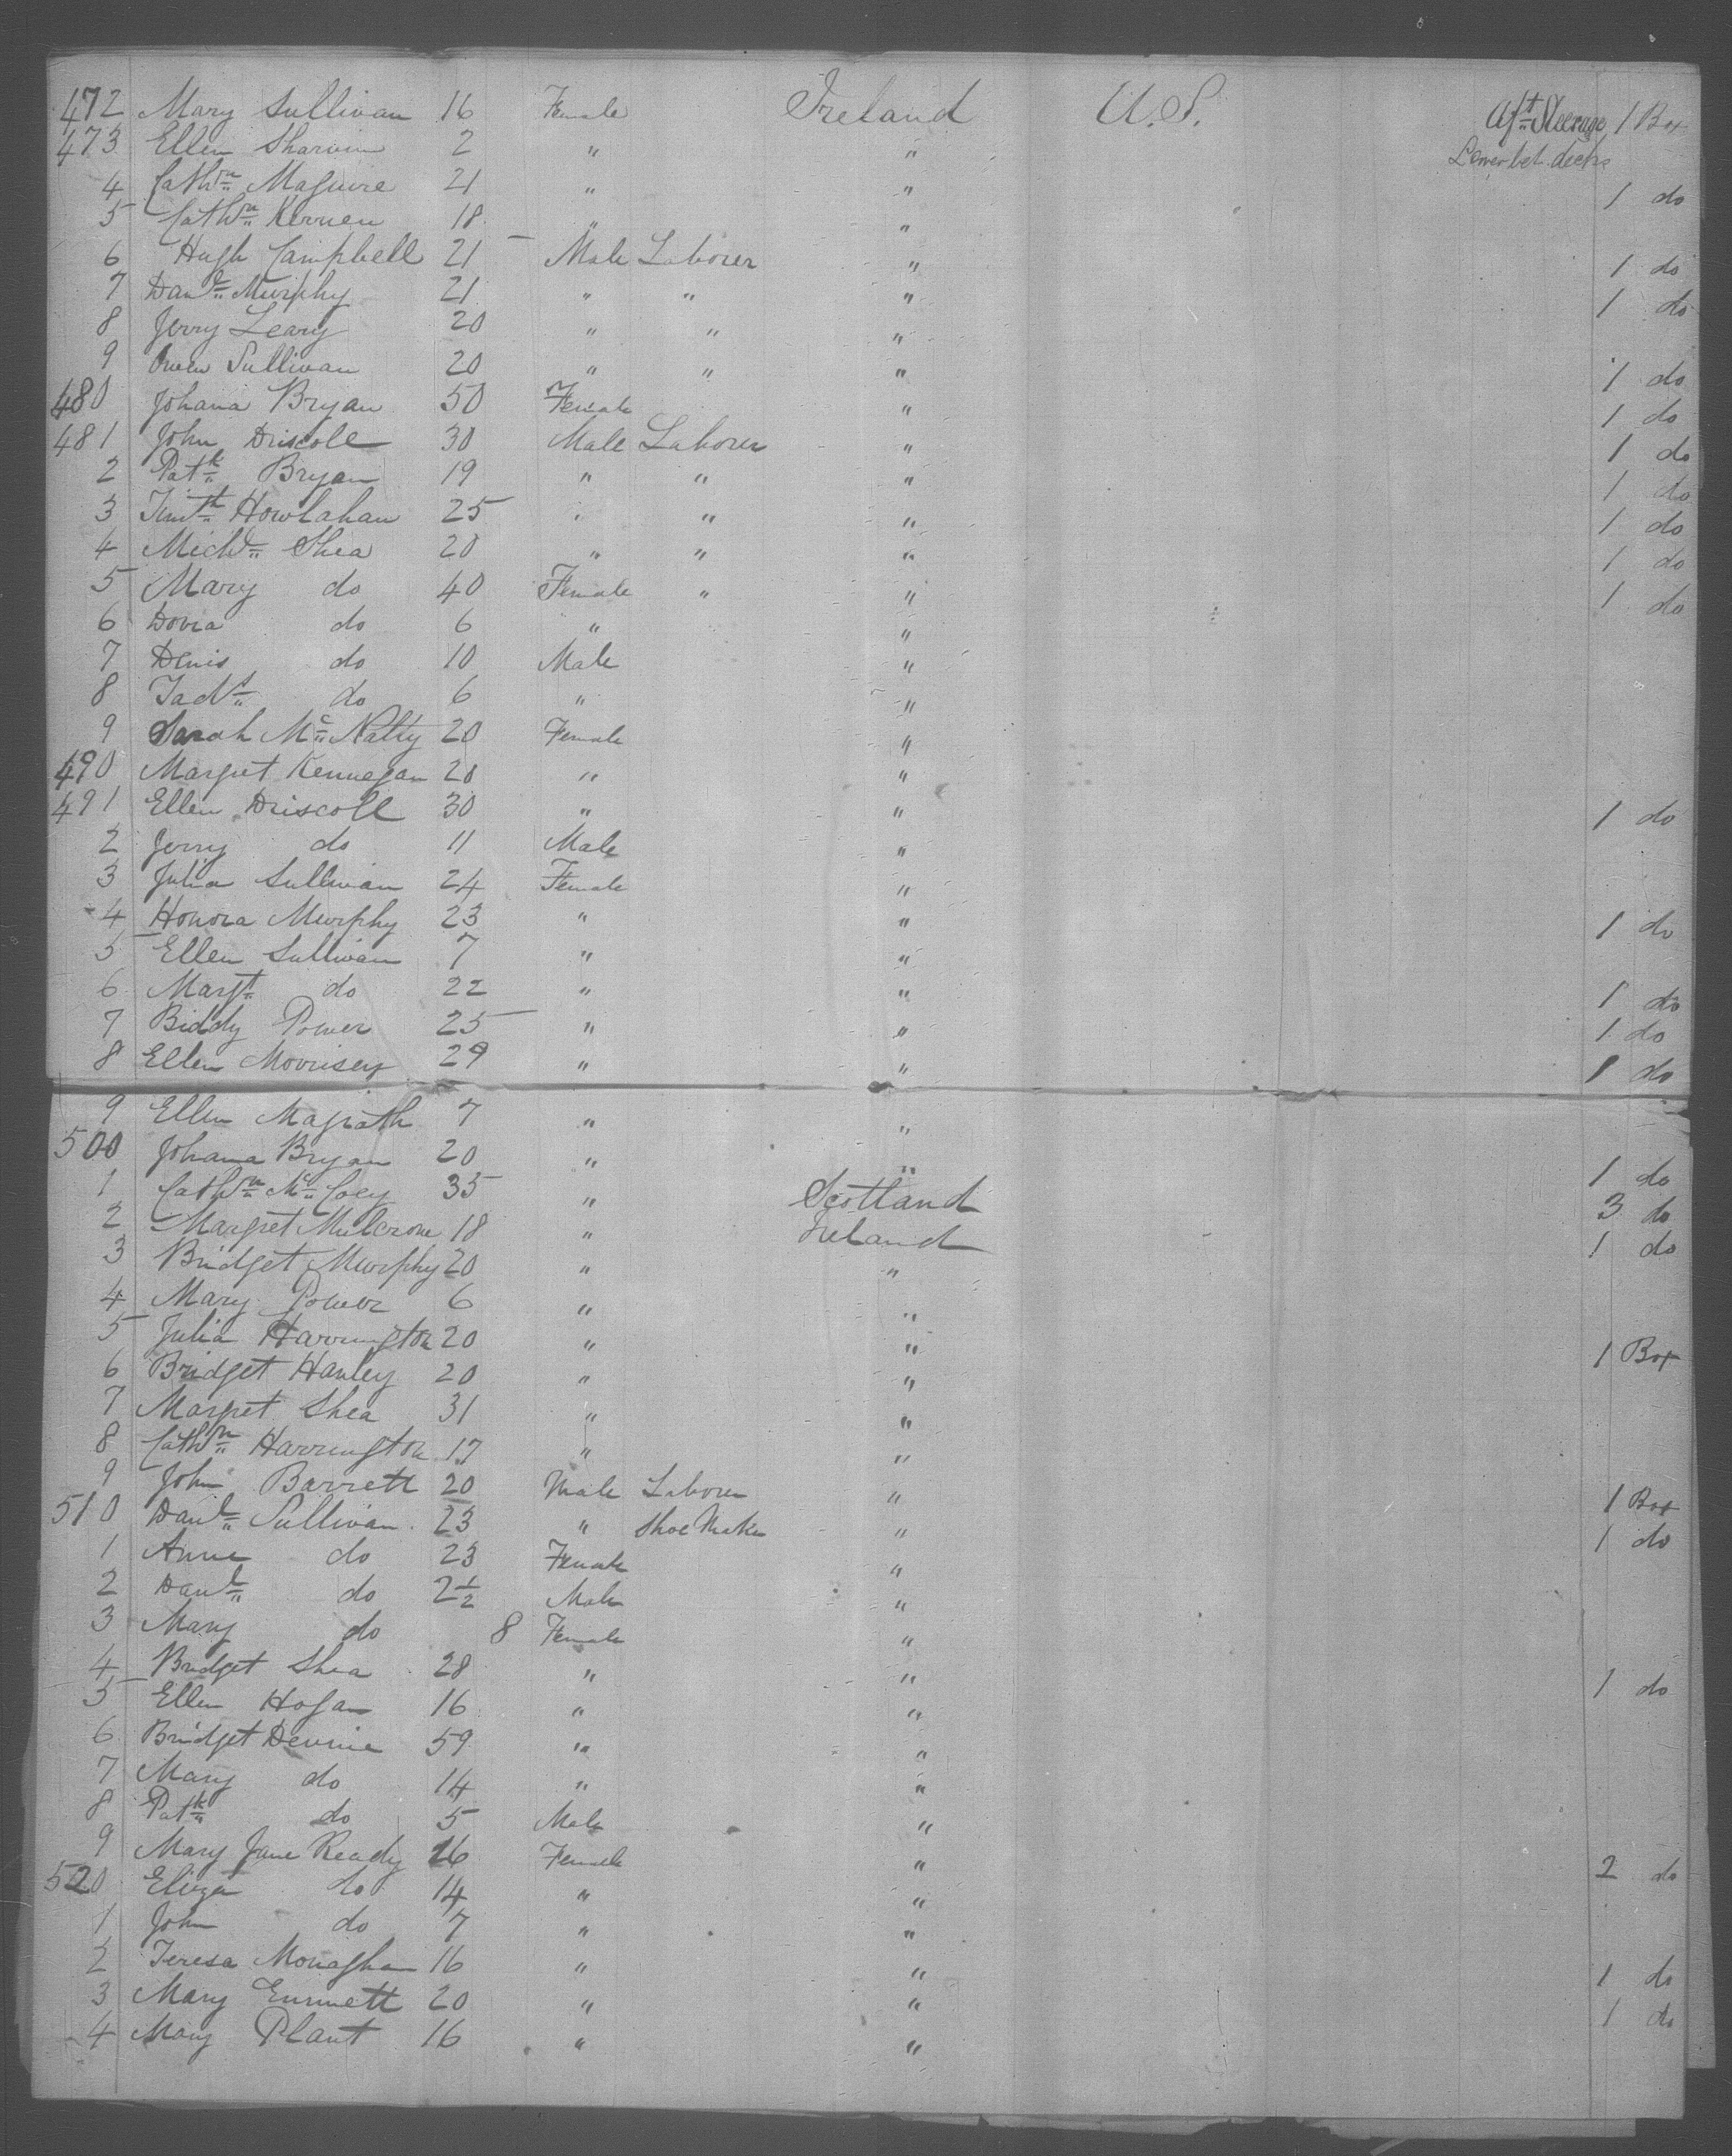 472 Mary Sullivan 16 Female Ireland U.S. Aft Steerage 1 Box
473 Ellen 2 " " Lower bet. decks
4 Cathn Maguire 21 " " 1 do
5 Cathn Kernen 18 " "
6 Hugh Campbell 21 Male Laborer " 1 do
7 Danl Murphy 21 " " " 1 do
8 Jerry Leary 20 " " "
9 Owen Sullivan 20 " " " 1 do
480 Johana Bryan 50 Female " 1 do
481 John Driscoll 30 Male Laborer " 1 do
2 Patk Bryan 19 " " " 1 do
3 Timth Howlahan 25 " " " 1 do
4 Michl Shea 20 " " " 1 do
5 Mary do 40 Female " " 1 do
6 do 6 " "
7 Denis do 10 Male "
8 do 6 " "
9 Sarah Mc Nalty 20 Female "
490 Margret Kennegan 20 " "
491 Ellen Driscoll 30 " " 1 do
2 Jerry do 11 Male "
3 Julia Sullivan 24 Female "
4 Honora Murphy 23 " " 1 do
5 Ellen Sullivan 7 " "
6 Margt do 22 " " 1 do
7 Biddy Power 25 " " 1 do
8 Ellen Morrisey 29 " " 1 do
9 Ellen Magrath 7 " "
500 Johana Bryan 20 " " 1 do
1 Cathn Mc Coey 35 " Scotland 3 do
2 Margret Mulcrone 18 " Ireland 1 do
3 Bridget Murphy 20 " "
4 Mary Power 6 " "
5 Julia Harrington 20 " " 1 Box
6 Bridget Hanley 20 " "
7 Margret Shea 31 " "
8 Cathn Harrington 17 " "
9 John Barrett 20 Male Laborer " 1 Box
510 Danl Sullivan 23 " Shoe Maker " 1 do
1 Anne do 23 Female "
2 Danl do 2½ Male "
3 Mary do 8 Female "
4 Bridget Shea 28 " " 1 do
5 Ellen Hogan 16 " "
6 Bridget Devine 59 " "
7 Mary do 14 " "
8 Patk do 5 Male "
9 Mary Jane Ready 26 Female " 2 do
520 Eliza do 14 " "
1 John do 7 " "
2 Teresa Monaghan 16 " " 1 do
3 Mary Emmett 20 " " 1 do
4 Mary Plant 16 " "